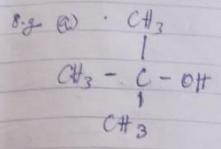 8.g (a) · CH3
|
CH3 - C - OH
|
CH3